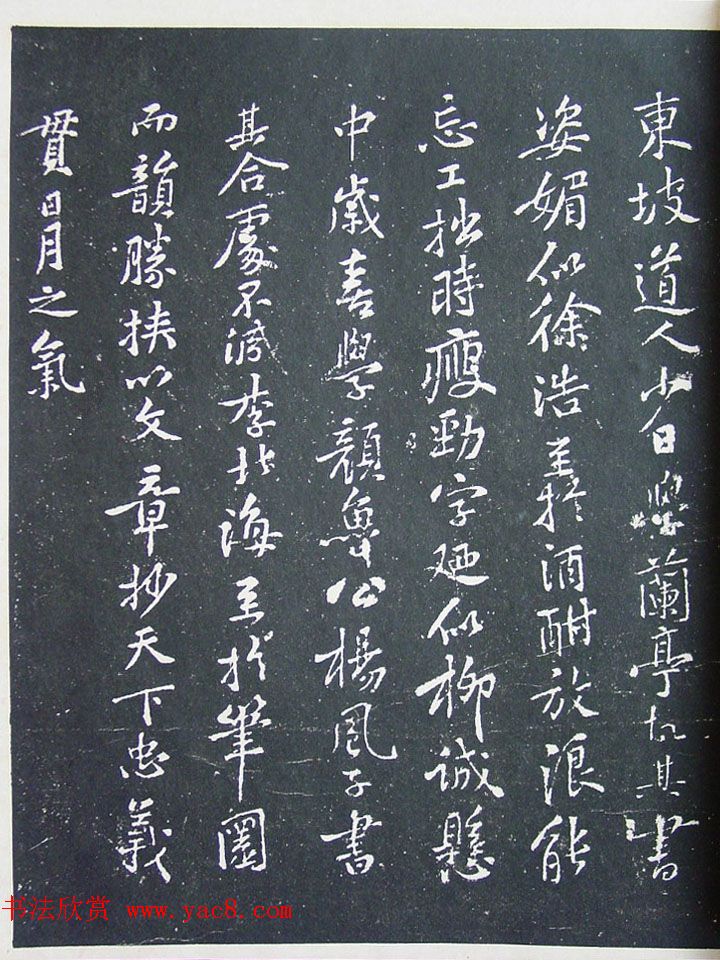 東坡道人少日學蘭亭故其書
姿媚似徐浩至於酒酣放浪能
忘工拙時瘦勁字迺似柳誠懸
中歲喜學顏魯公楊風子書
其合處不減李北海至於筆圜
而韻勝挾以文章妙天下忠義
貫日月之氣
书法欣赏 www.yac8.com